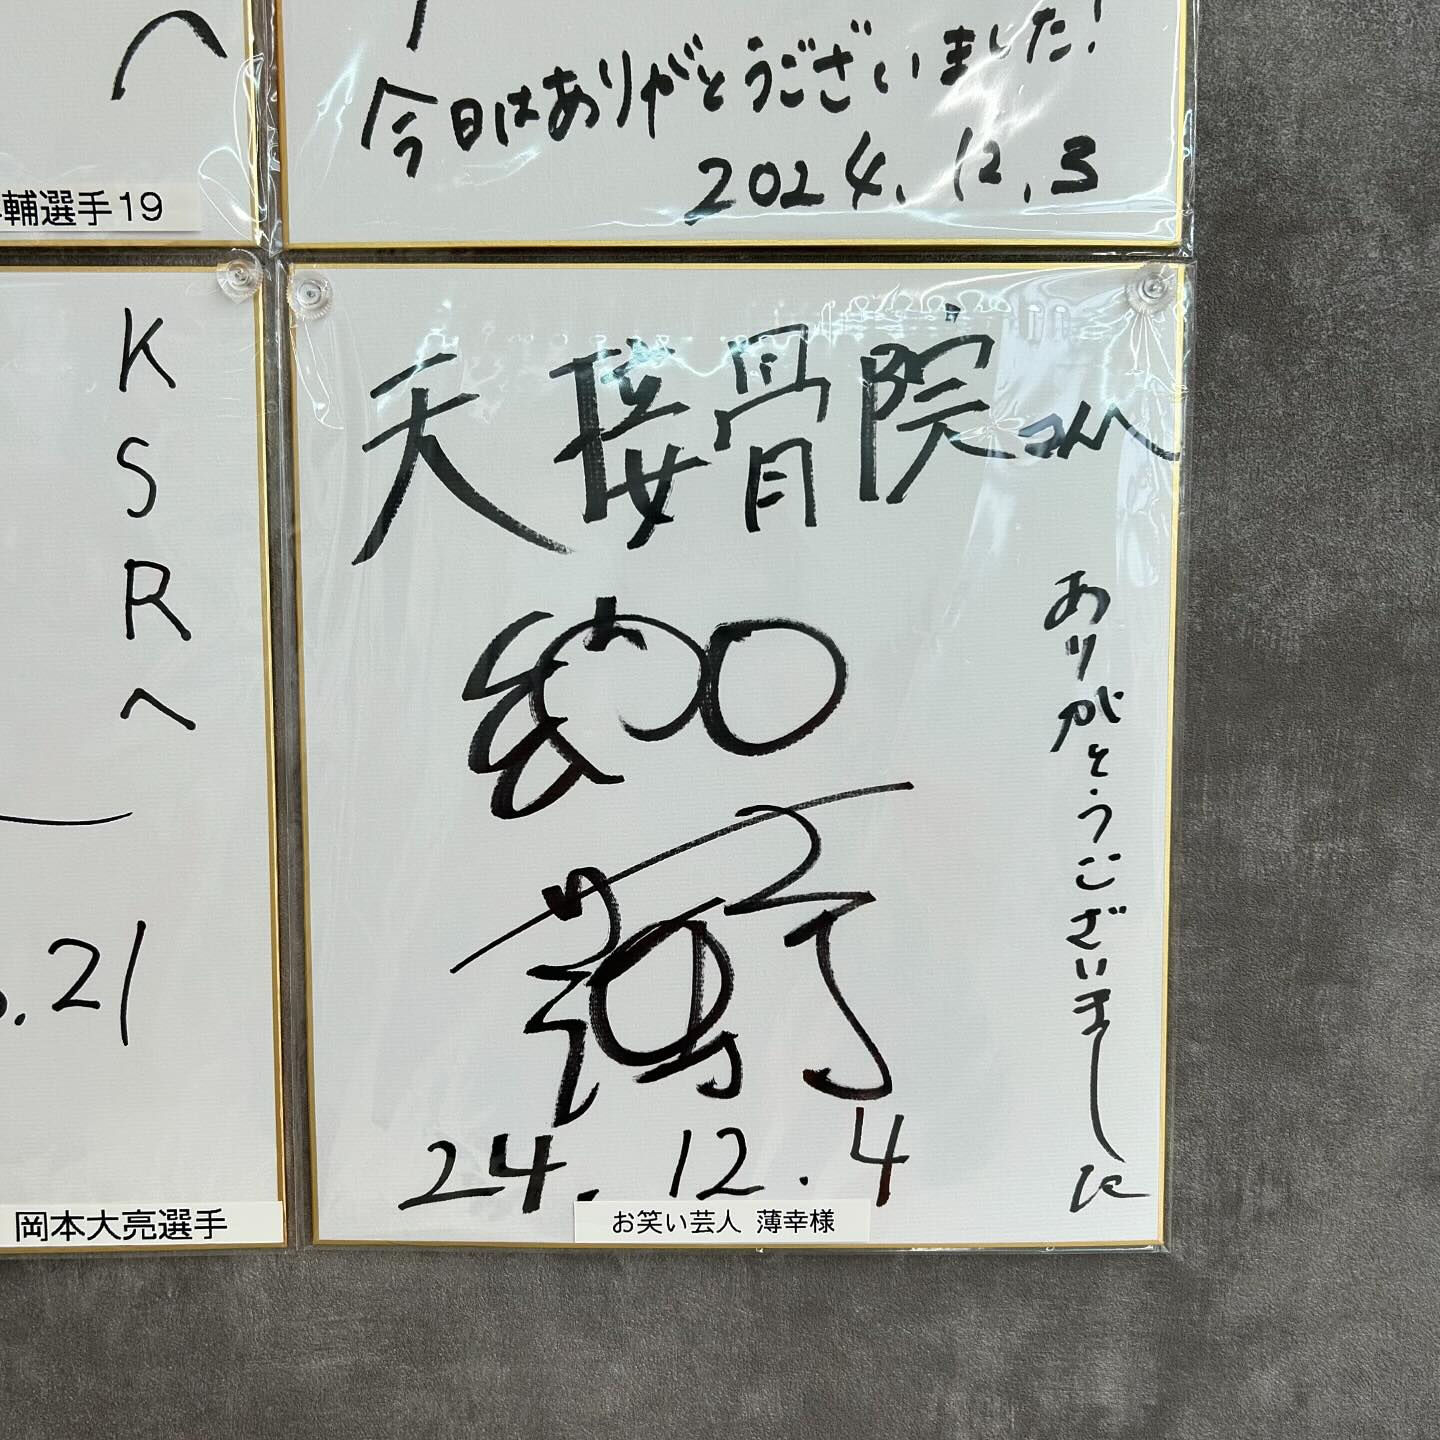 今日はありがとうございました!
2024.12.3
輔選手19
KSRへ
.21
岡本大亮選手
天接骨院さん
納言
薄幸
ありがとうございました
24.12.4
お笑い芸人 薄幸様